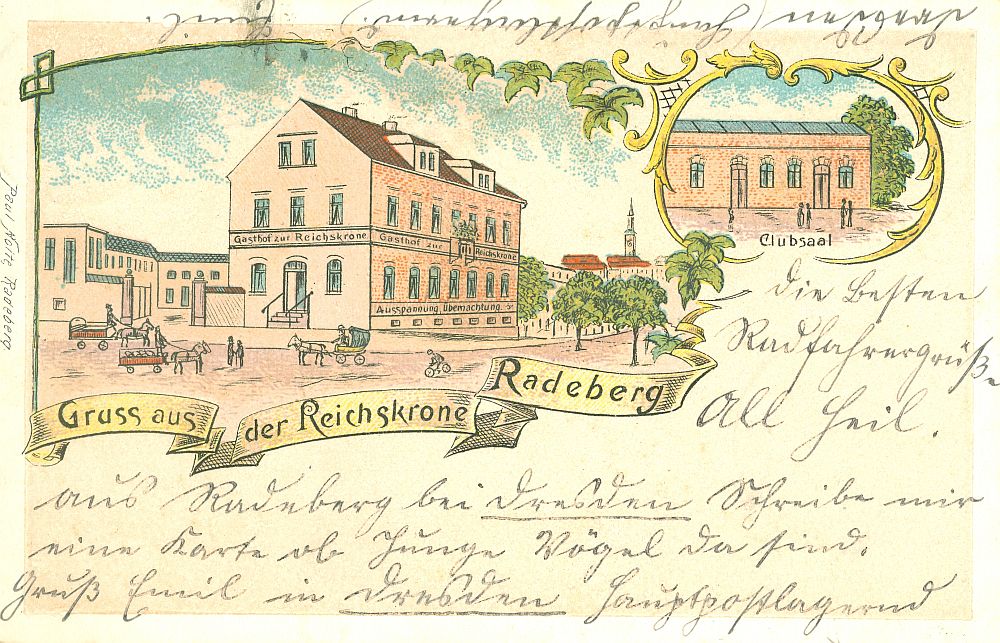 Dresden (Hauptpostlagernd) Emil.
Paul Nolte Radeberg
Gasthof zur Reichskrone
Gasthof zur Reichskrone
Ausspannung, Übernachtung.
Clubsaal
Gruss aus der Reichskrone Radeberg
die Besten
Radfahrergrüß-
All Heil.
aus Radeberg bei Dresden Schreibe mir
eine Karte ob Junge Vögel da sind.
Gruß Emil in Dresden Hauptpostlagernd